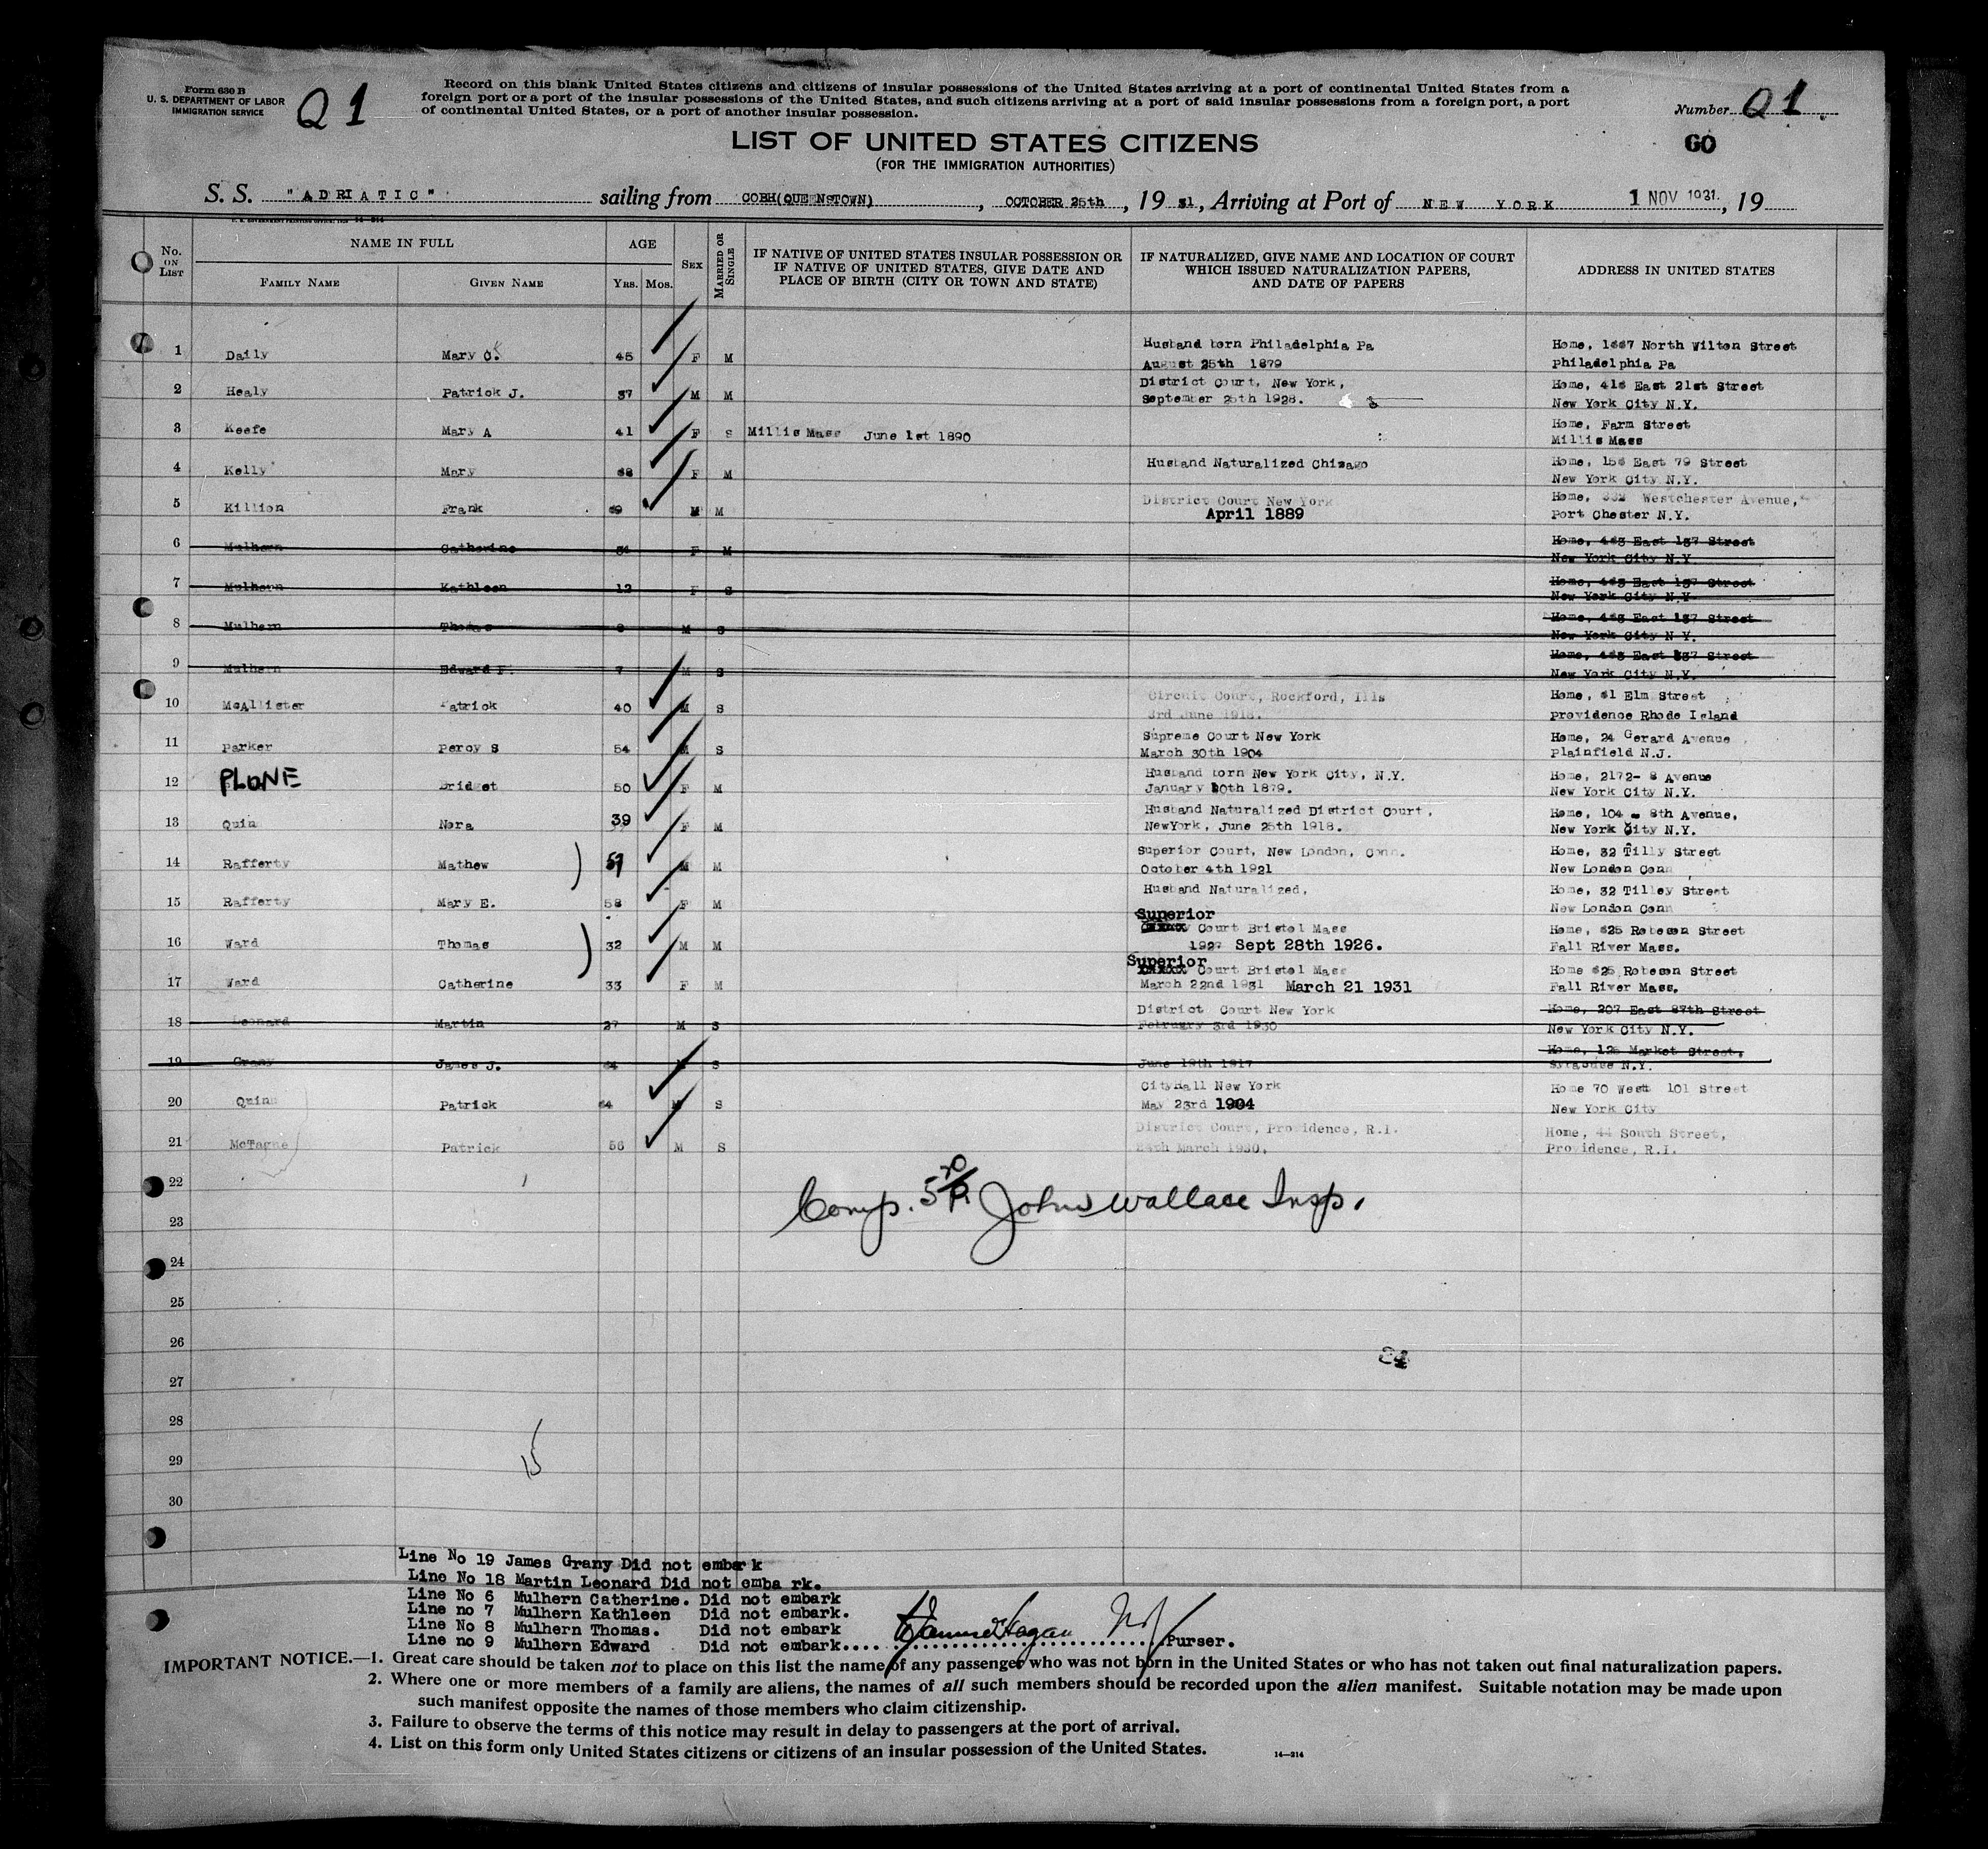 Form 630 B
U. S. DEPARTMENT OF LABOR
IMMIGRATION SERVICE
Q 1
Record on this blank United States citizens and citizens of insular possessions of the United States arriving at a port of continental United States from a
foreign port or a port of the insular possessions of the United States, and such citizens arriving at a port of said insular possessions from a foreign port, a port
of continental United States, or a port of another insular possession.
Number Q 1
GO
LIST OF UNITED STATES CITIZENS
(FOR THE IMMIGRATION AUTHORITIES)
S. S. "ADRIATIC" sailing from COBH(QUEENSTOWN), OCTOBER 25th, 19 31, Arriving at Port of NEW YORK 1 NOV 1931, 19
No. ON LIST
NAME IN FULL
FAMILY NAME
GIVEN NAME
AGE
YRS. MOS.
SEX
MARRIED OR SINGLE
IF NATIVE OF UNITED STATES INSULAR POSSESSION OR
IF NATIVE OF UNITED STATES, GIVE DATE AND
PLACE OF BIRTH (CITY OR TOWN AND STATE)
IF NATURALIZED, GIVE NAME AND LOCATION OF COURT
WHICH ISSUED NATURALIZATION PAPERS,
AND DATE OF PAPERS
ADDRESS IN UNITED STATES
1 Daily Mary C. 45 F M Husband born Philadelphia Pa Home, North Wilton Street
August 25th 1879 Philadelphia Pa
2 Healy Patrick J. 37 M M District Court, New York, Home, East 21st Street
September 25th 1928. New York City N.Y.
3 Keefe Mary A 41 F S Millis Mass June 1st 1890 Home, Farm Street
Millis Mass
4 Kelly Mary F M Husband Naturalized Chicago Home, East 79 Street
New York City N.Y.
5 Killion Frank M M District Court New York Home, Westchester Avenue,
April 1889 Port Chester N.Y.
6 Mulhern Catherine F M Home, East 137 Street
New York City N.Y.
7 Mulhern Kathleen 12 F S Home, East 137 Street
New York City N.Y.
8 Mulhern Thomas M S Home, East 137 Street
New York City N.Y.
9 Mulhern Edward F. 7 M S Home, East Street
New York City N.Y.
10 McAllister Patrick 40 M S Circuit Court, Rockford, Ills Home, Elm Street
3rd June 1918. Providence Rhode Island
11 Parker Percy S 54 M S Supreme Court New York Home, 24 Gerard Avenue
March 30th 1904 Plainfield N.J.
12 PLONE Bridget 50 F M Husband born New York City, N.Y. Home, 2172- 8 Avenue
January 1879. New York City N.Y.
13 Quin Nora 39 F M Husband Naturalized District Court, Home, 104 - 8th Avenue,
NewYork, June 25th 1918. New York City N.Y.
14 Rafferty Mathew M M Superior Court, New London, Conn. Home, 32 Tilly Street
October 4th 1921 New London Conn
15 Rafferty Mary E. 58 F M Husband Naturalized, Home, 32 Tilley Street
New London Conn
16 Ward Thomas 32 M M Superior Court Bristol Mass Home, Robeson Street
1927 Sept 28th 1926. Fall River Mass.
17 Ward Catherine 33 F M Superior Court Bristol Mass Home Robeson Street
March 22nd 1931 March 21 1931 Fall River Mass.
18 Leonard Martin 27 M S District Court New York Home, 207 East 87th Street
February 3rd 1930 New York City N.Y.
19 Grany James J. S June 19th 1917 Home, Market Street,
Syracuse N.Y.
20 Quinn Patrick M S CityHall New York Home 70 West 101 Street
May 23rd 1904 New York City
21 McTague Patrick 56 M S District Court, Providence, R.I. Home, 44 South Street,
24th March 1930. Providence, R.I.
22
Comp. John Wallace Insp.
23
24
25
26
27
28
29
15
30
Line No 19 James Grany Did not embark
Line No 18 Martin Leonard Did not emba rk.
Line No 6 Mulhern Catherine. Did not embark
Line no 7 Mulhern Kathleen Did not embark.
Line No 8 Mulhern Thomas. Did not embark
Line no 9 Mulhern Edward Did not embark. Purser.
IMPORTANT NOTICE.—1. Great care should be taken not to place on this list the name of any passenger who was not born in the United States or who has not taken out final naturalization papers.
2. Where one or more members of a family are aliens, the names of all such members should be recorded upon the alien manifest. Suitable notation may be made upon
such manifest opposite the names of those members who claim citizenship.
3. Failure to observe the terms of this notice may result in delay to passengers at the port of arrival.
4. List on this form only United States citizens or citizens of an insular possession of the United States.
14—214